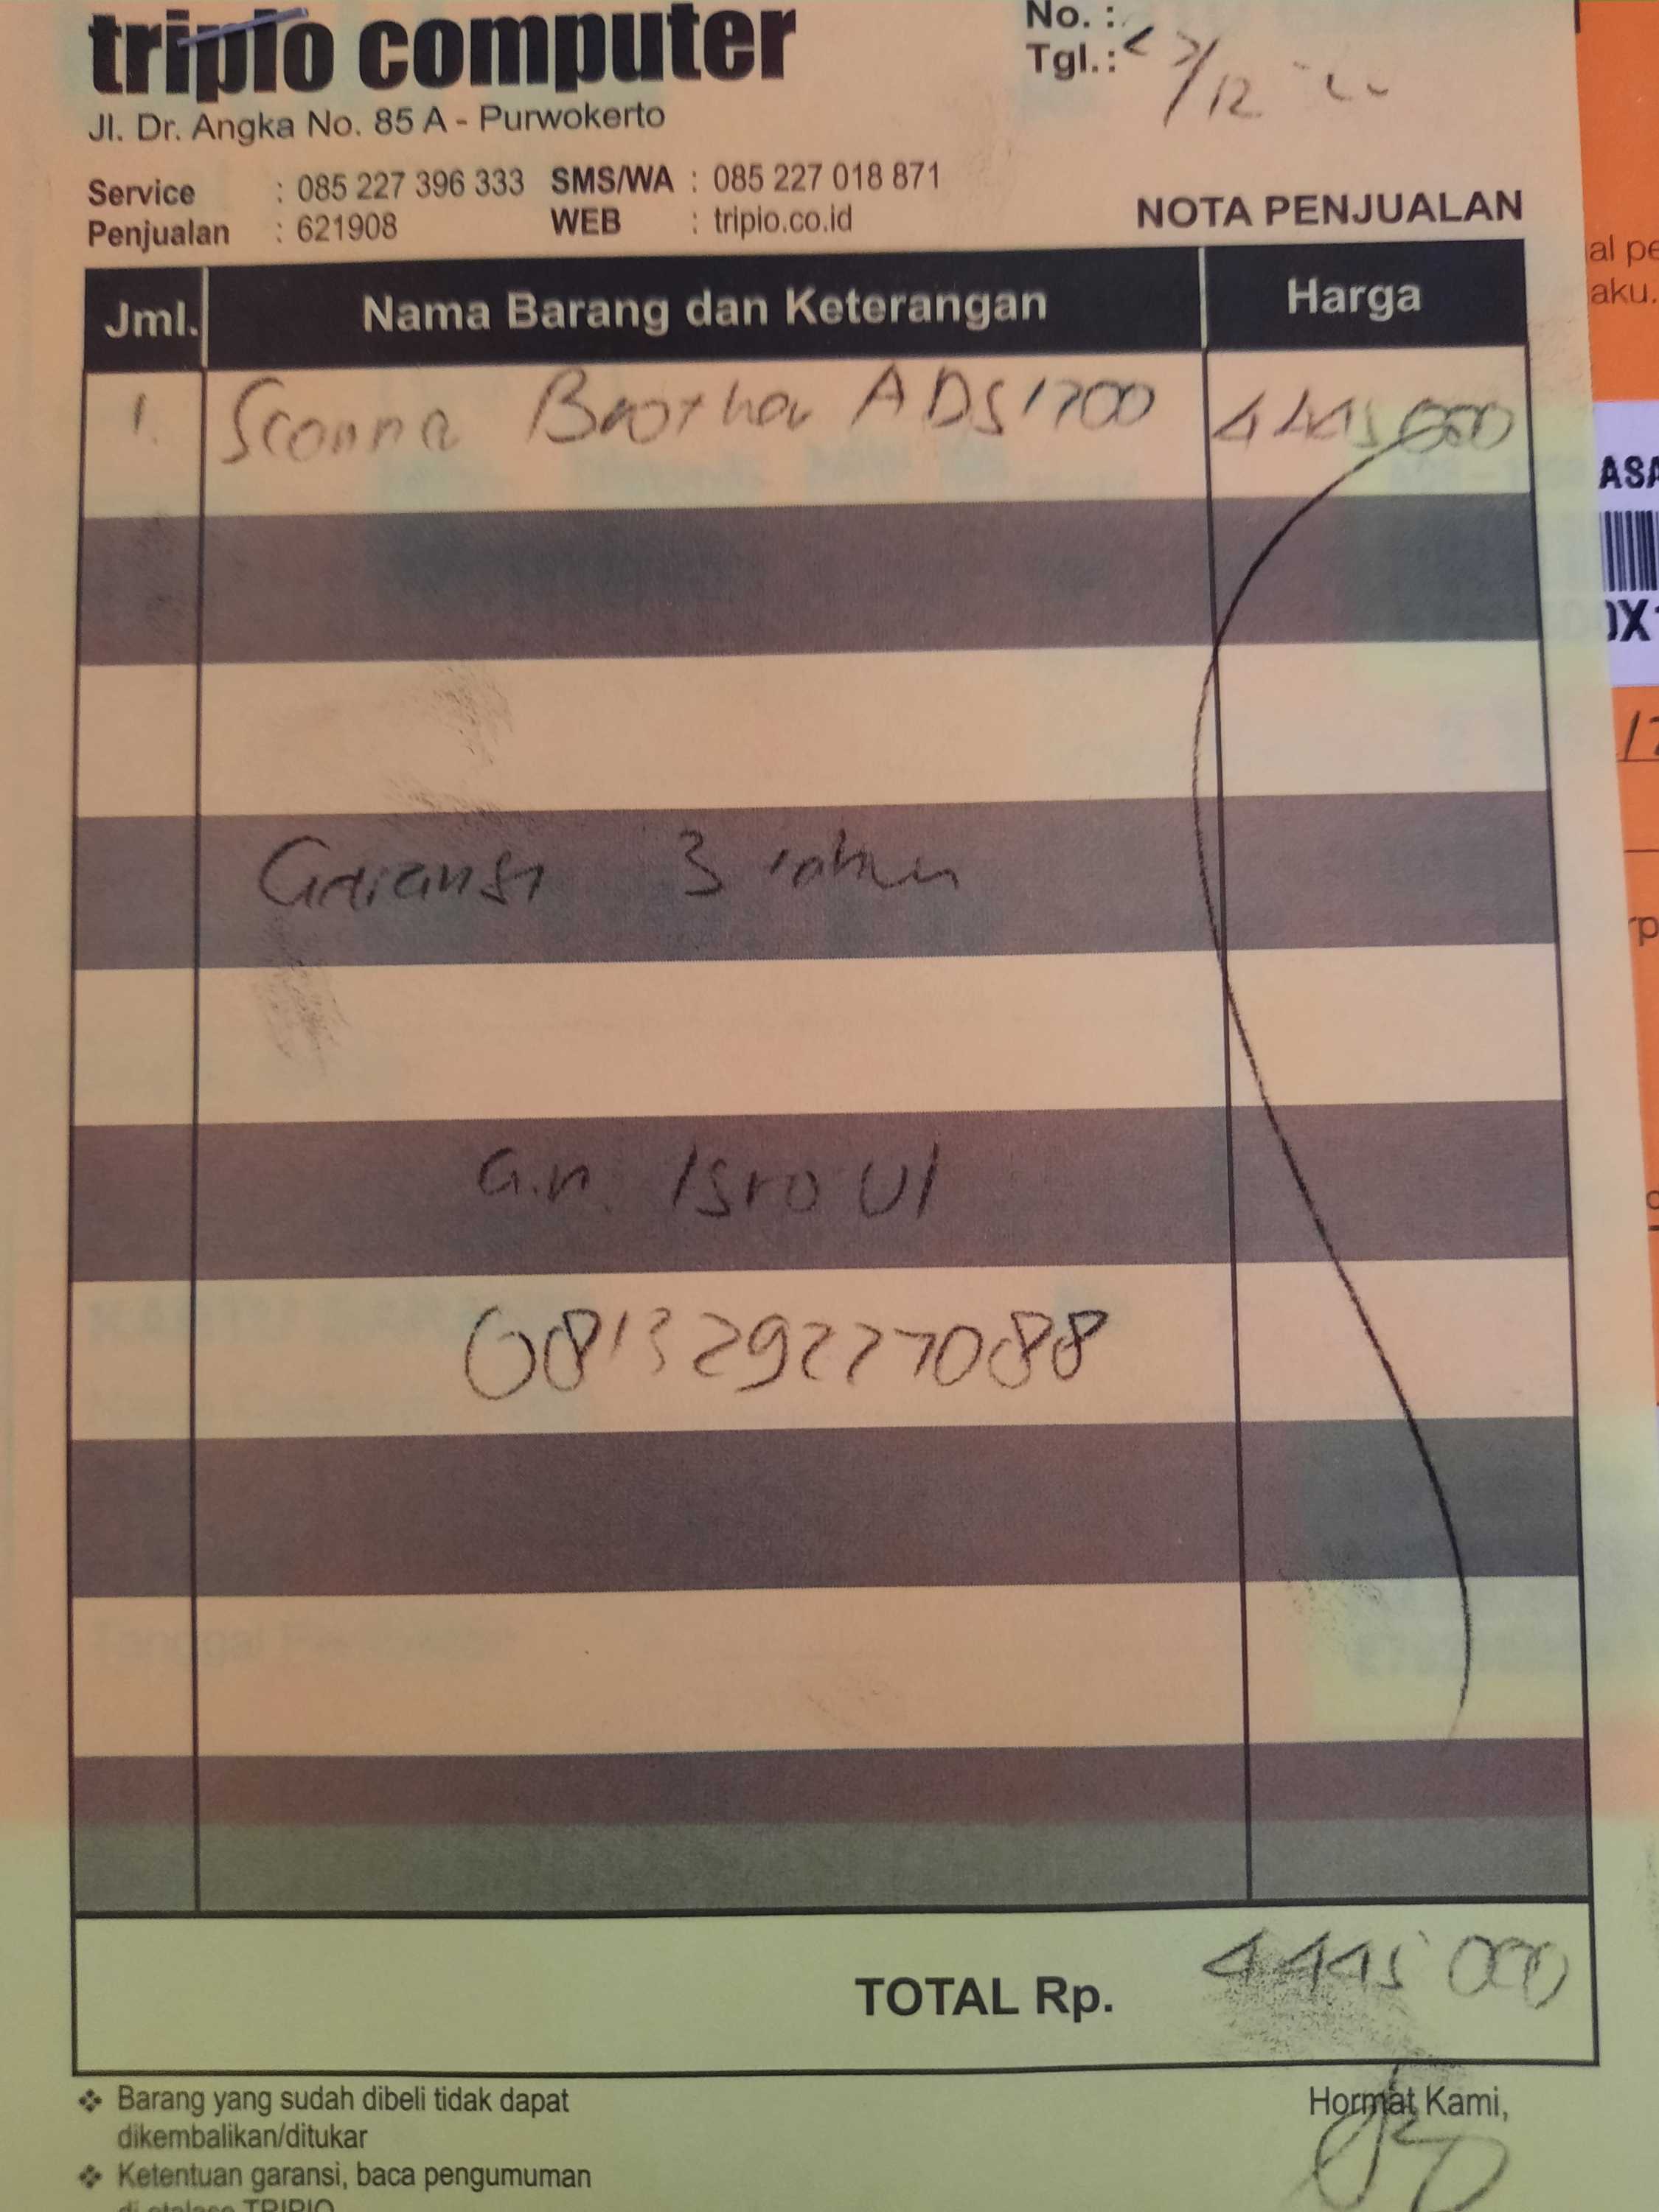 tripio computer
No. :
Tgl.: /12
Jl. Dr. Angka No. 85 A - Purwokerto
Service : 085 227 396 333 SMS/WA : 085 227 018 871
Penjualan : 621908 WEB : tripio.co.id
NOTA PENJUALAN
Jml. Nama Barang dan Keterangan Harga
1. Scanner Brother ADS1700 4445000
Garansi 3 tahun
a.n. Isro Ul
081329227088
TOTAL Rp. 4445 000
Barang yang sudah dibeli tidak dapat
dikembalikan/ditukar
Ketentuan garansi, baca pengumuman
di etalase TRIPIO
Hormat Kami,
al pe
aku.
ASA
0X1